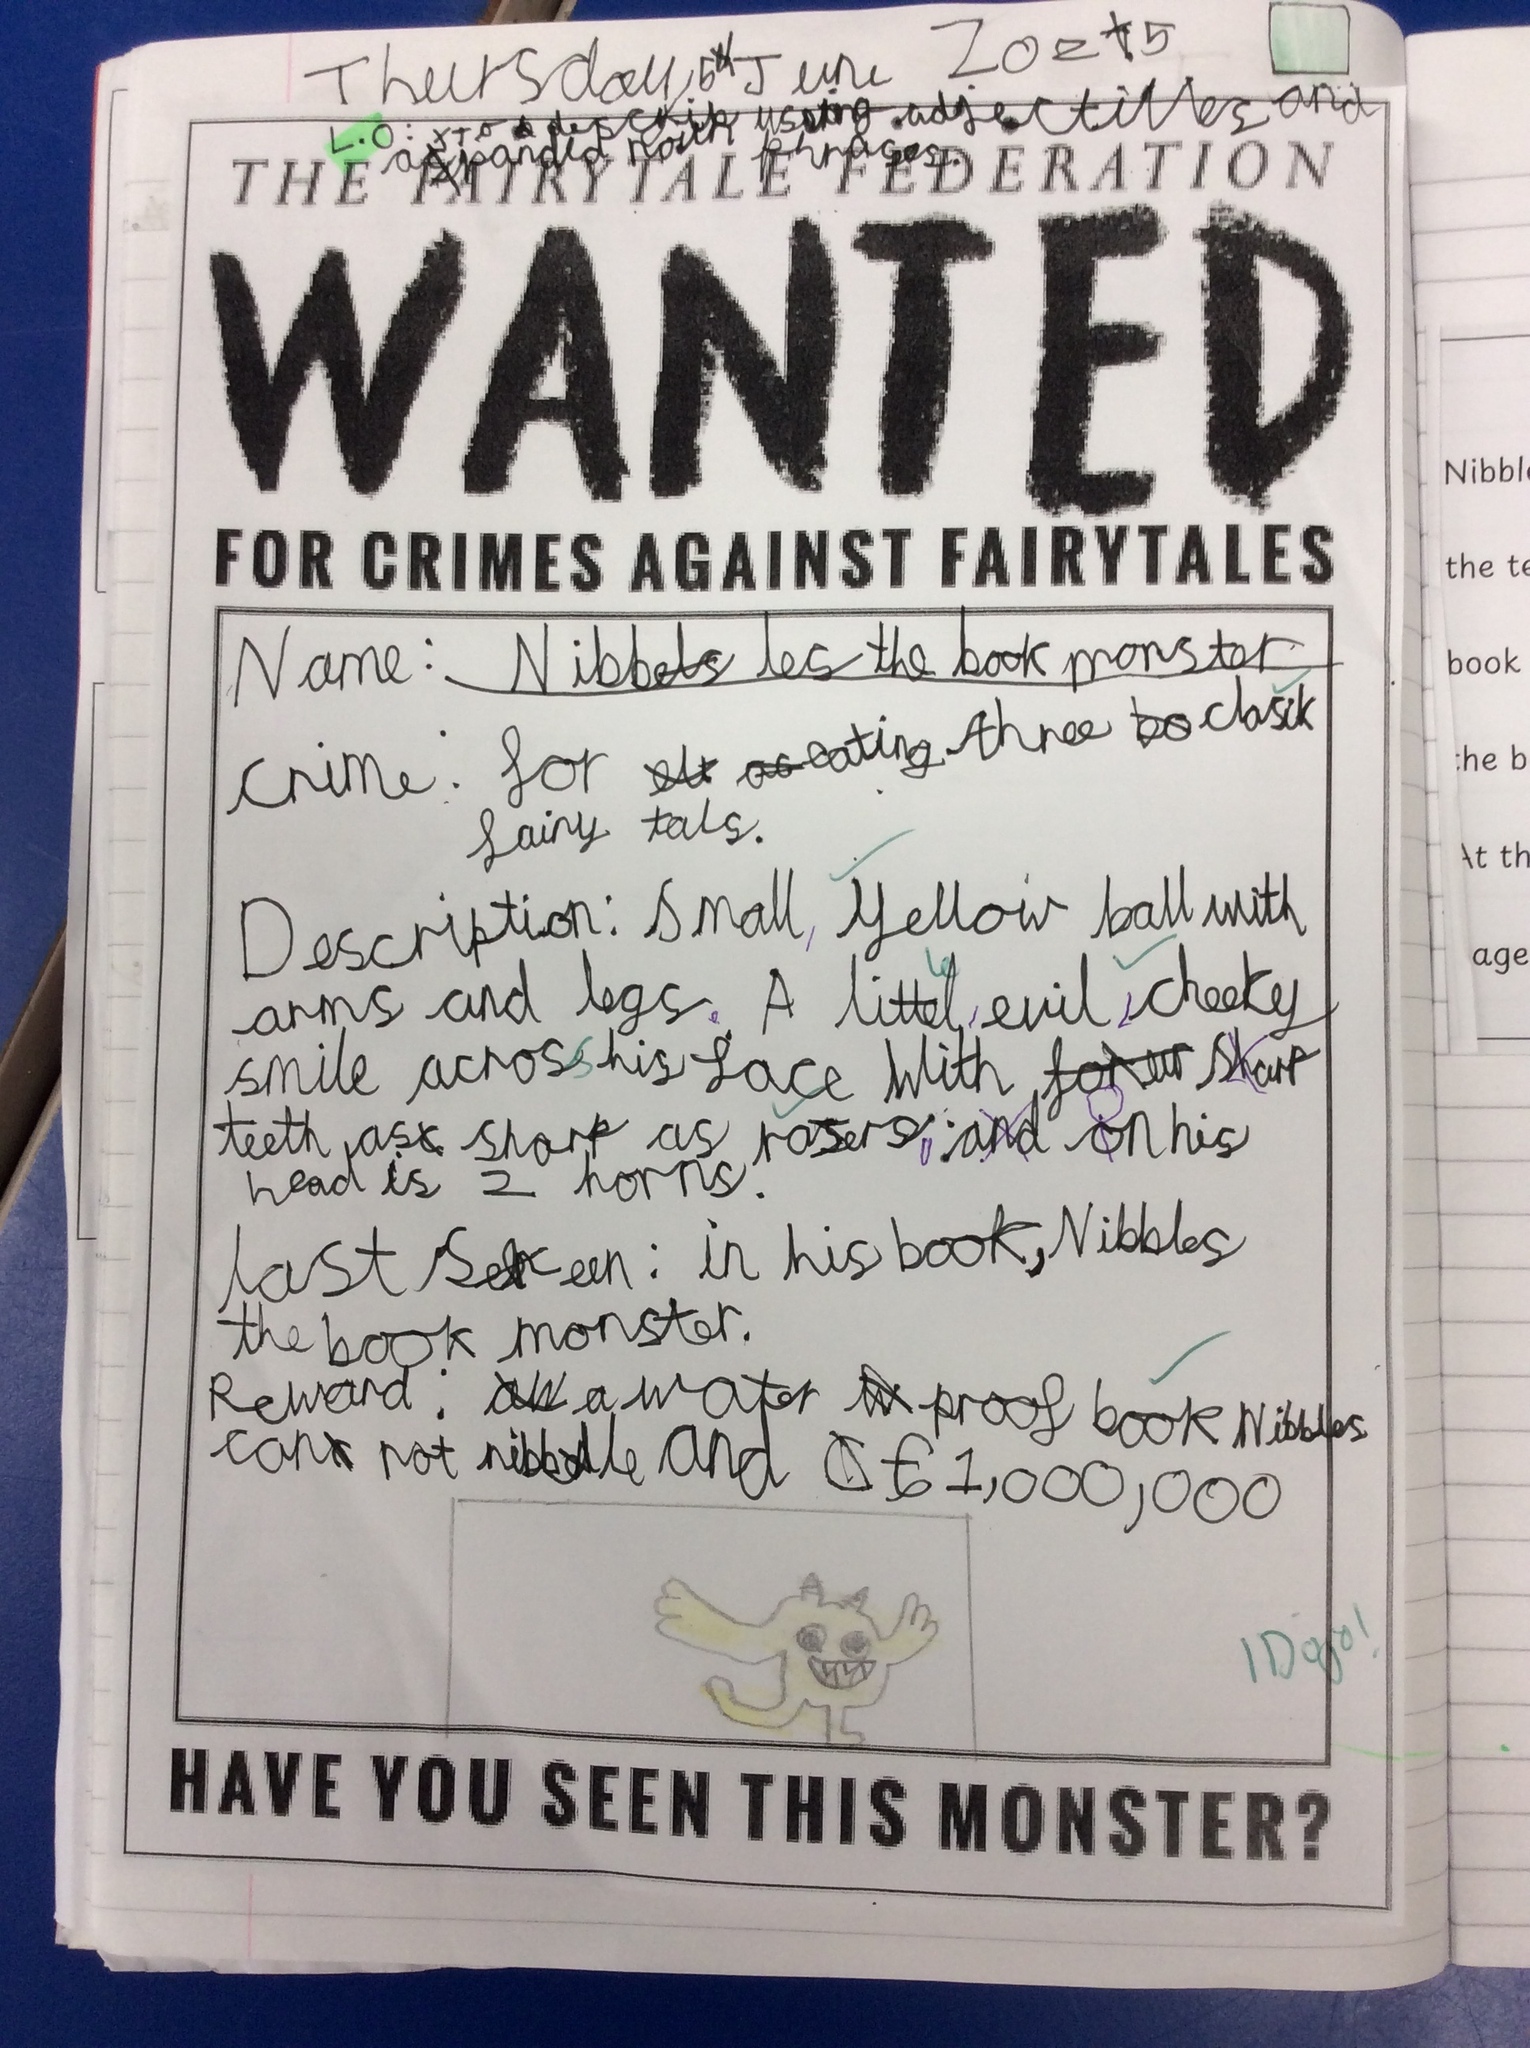 Thursday 5th June 2025
L.O: to describ using adjectives and
THE FAIRYTALE FEDERATION
expanded noun phrases.
WANTED
FOR CRIMES AGAINST FAIRYTALES
Name: Nibbles the book monster
Crime: for eating three clasik
fairy tals.
Description: Small, Yellow ball with
arms and legs. A little, evil, cheeky
smile across his face with sharp
teeth as sharp as rasers. On his
head is 2 horns.
Last Seen: in his book, Nibbles
the book monster.
Reward: a water proof book Nibbles
can not nibble and £1,000,000
1 Dojo!
HAVE YOU SEEN THIS MONSTER?
Nibble
the te
book
the b
At th
age